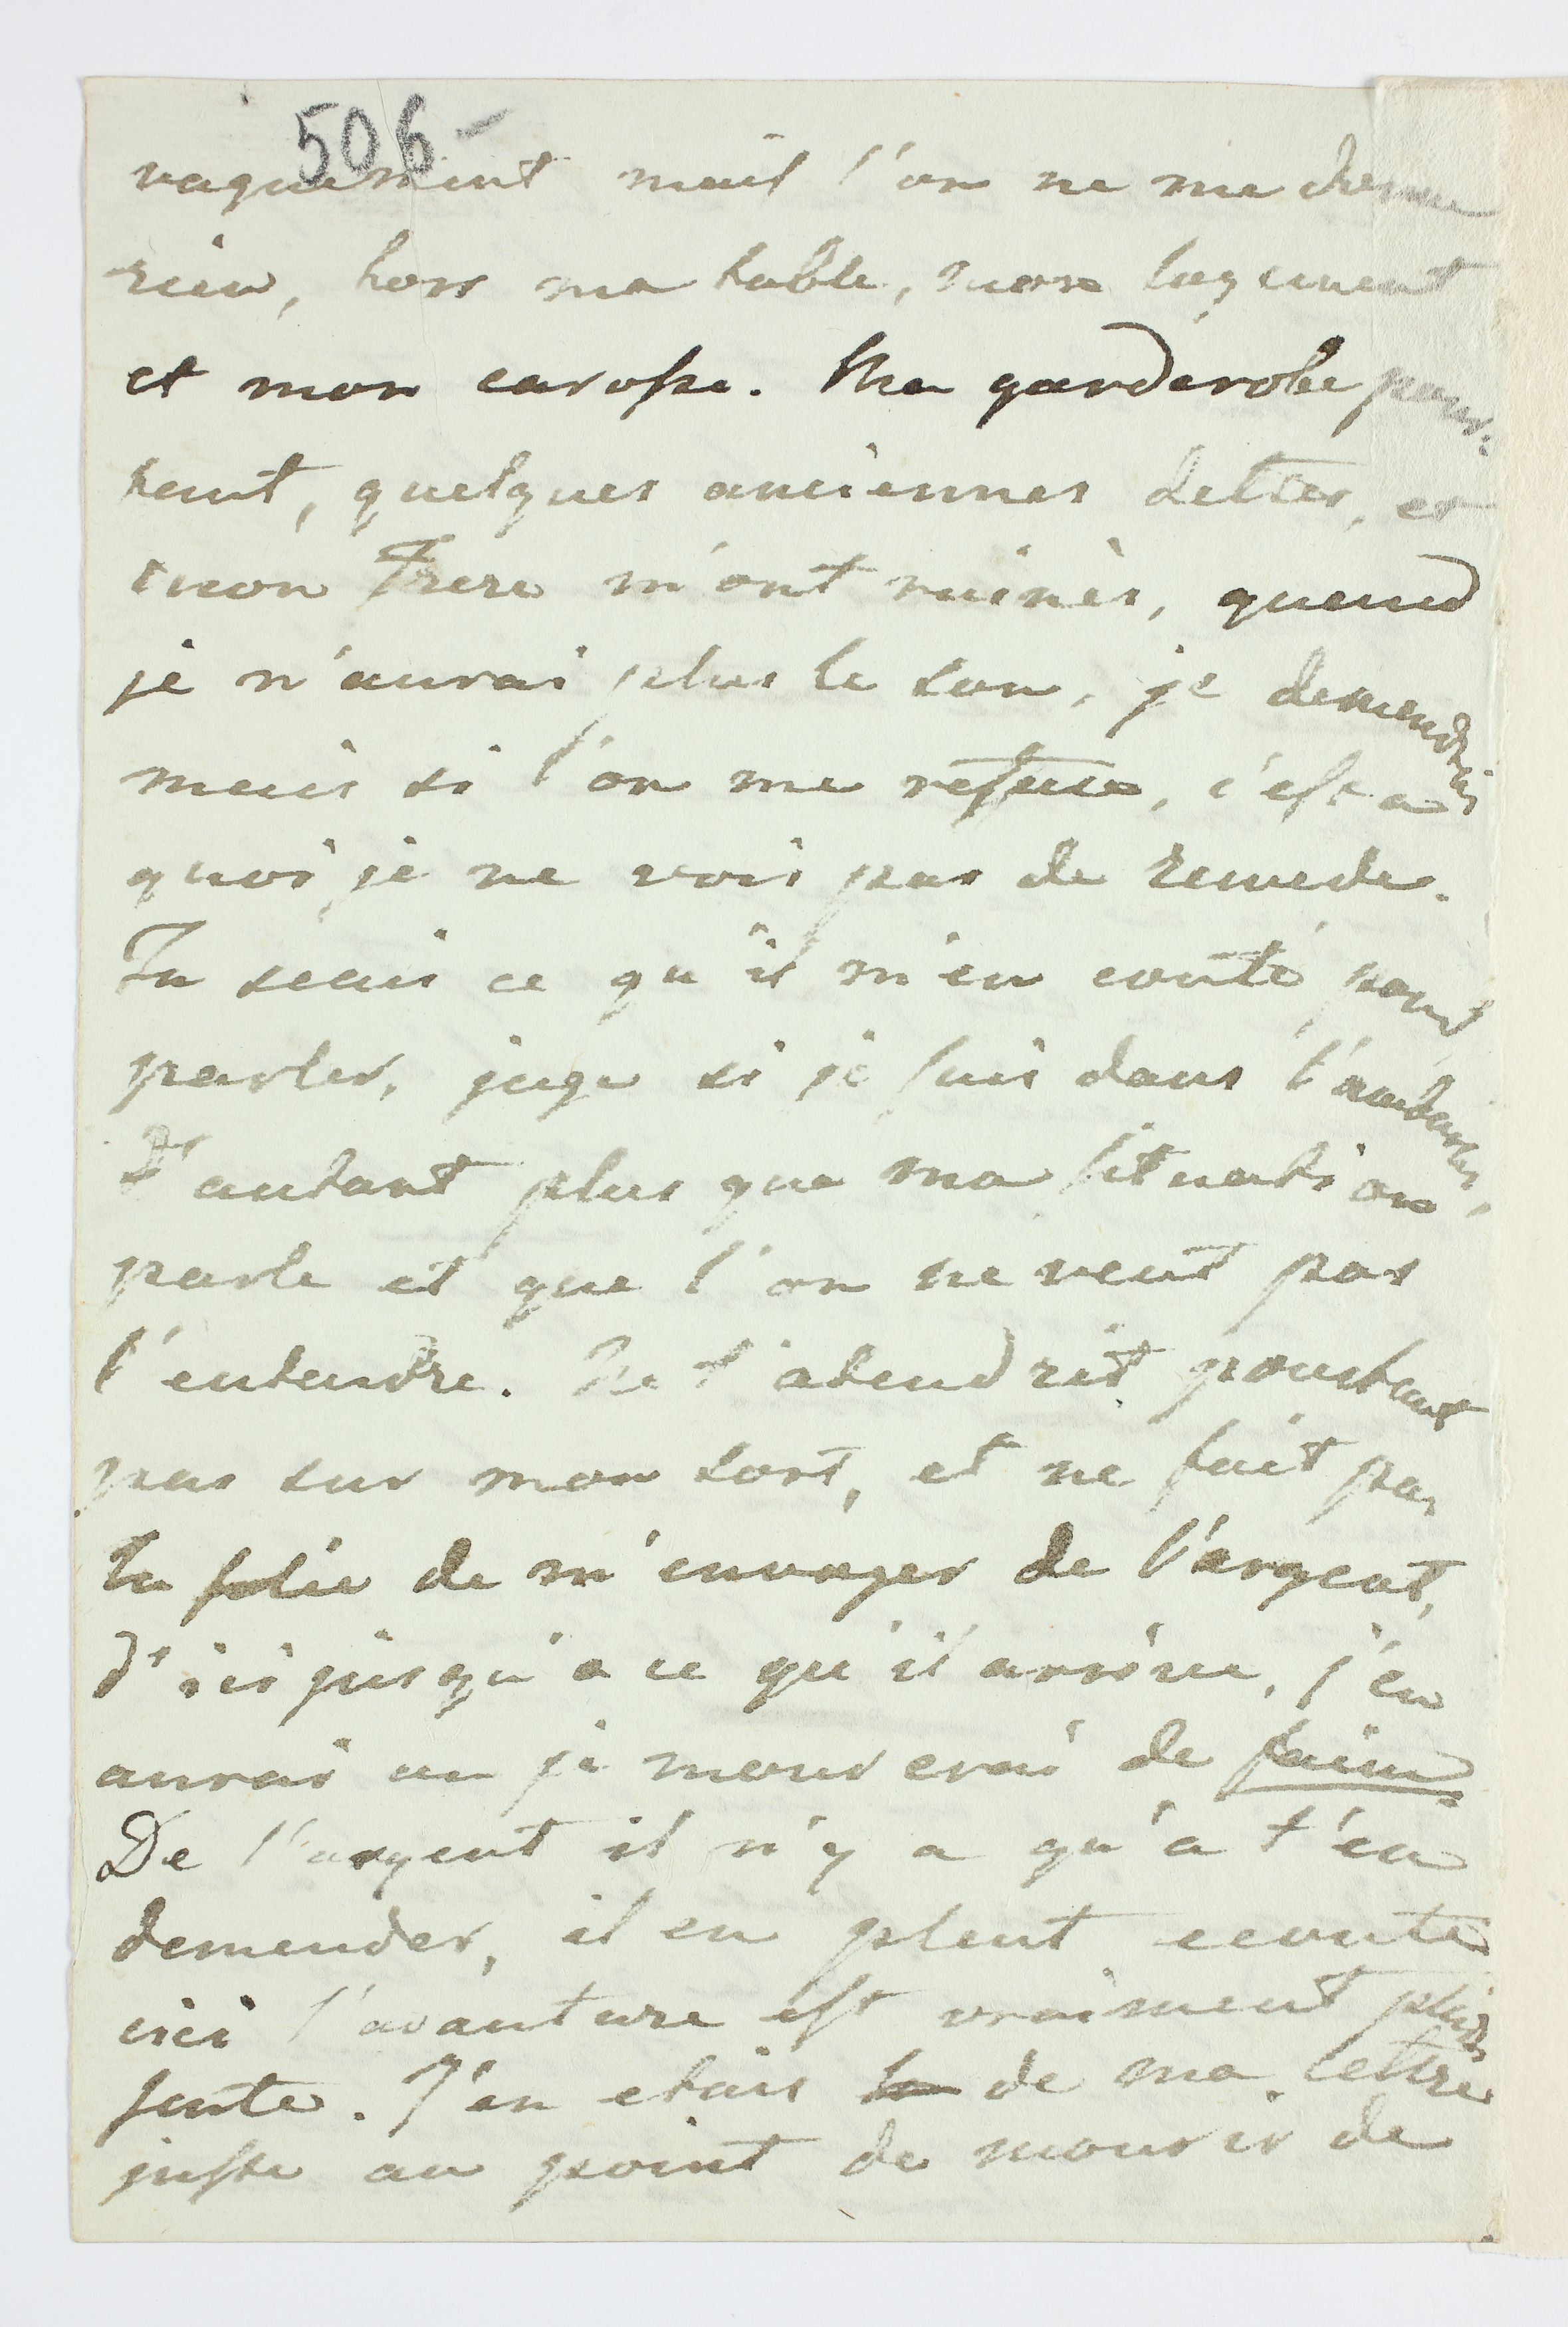 506-
vaguement mais l'on ne me donne
rien, hors ma table, mon logement
et mon carosse. Ma garderobe pour-
tent, quelques anciennes dettes, et
mon Frere m'ont ruinès, quend
je n'aurai plus le sou, je demendrais
mais si l'on me refuse, c'est a
quoi je ne vois pas de remede.
Tu scais ce qu'il m'en coute pour
parler, juge si je suis dans l'embaras,
D'autant plus que ma situation
parle et que l'on ne veut pas
l'entendre. Ne t'atendrit pourtant
pas sur mon sort, et ne fait pas
la folie de m'envoyer de l'argent,
d'ici jusqu'a ce qu'il arrive, j'en
aurai ou je mourerai de faim.
De l'argent il n'y a qu'a t'en
demender, il en pleut ecoute
ici l'avanture est vraiment plai-
sente. J'en etais la de ma lettre
juste au point de mourir de